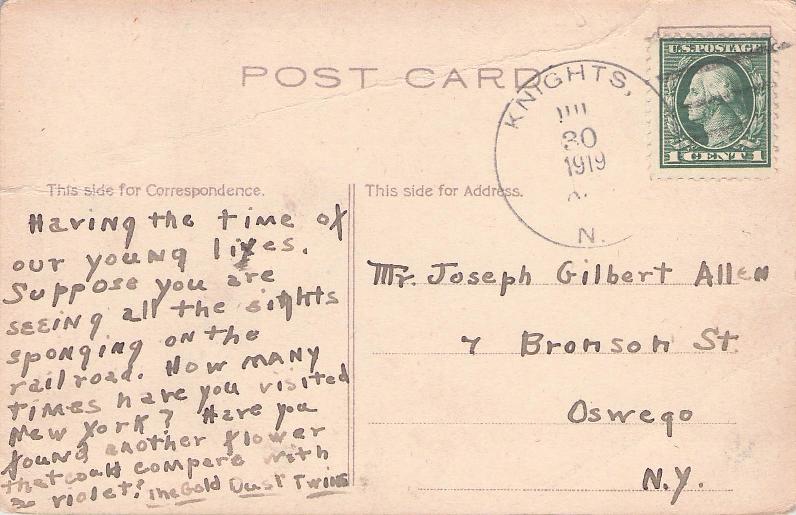 POST CARD
KNIGHTS,
30
1919
A.
N.
U.S.POSTAGE
1 CENT 1
This side for Correspondence.
This side for Address.
Having the time of
our young lives.
Suppose you are
seeing all the sights
sponging on the
railroad. How many
times have you visited
New York? Have you
found another flower
that could compare with
a violet? The Gold Dust Twins
Mr. Joseph Gilbert Allen
7 Bronson St.
Oswego
N.Y.